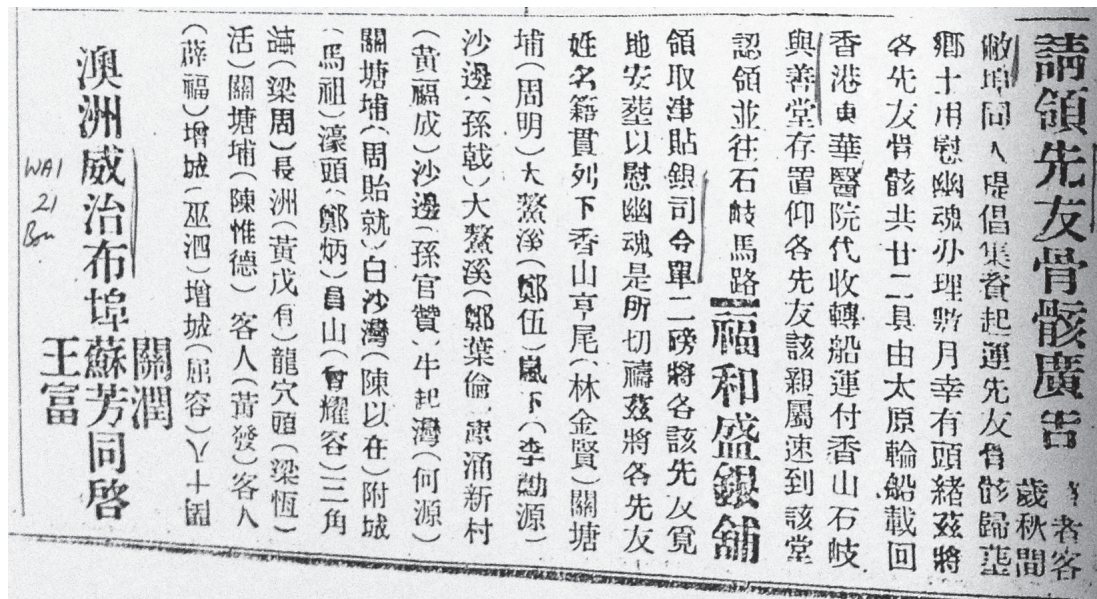 請領先友骨骸廣告
者客
歲秋間
敝埠同人提倡集資起運先友骨骸歸塟
鄉土用慰幽魂办理數月幸有頭緒茲將
各先友骨骸共廿二具由太原輪船載回
香港東華醫院代收轉船運付香山石岐
與善堂存置仰各先友該親屬速到該堂
認領並往石岐馬路福和盛銀舖
領取津貼銀司令單二磅將各該先友覓
地安塟以慰幽魂是所切禱茲將各先友
姓名籍貫列下香山亨尾(林金賢)關塘
埔(周明)大鰲溪(鄭伍)嵐下(李勳源)
沙邊(孫戟)大鰲溪(鄭葉倫)涌新村
(黃福成)沙邊(孫官贊)牛起灣(何源)
關塘埔(周貽就)白沙灣(陳以在)附城
(馬祖)濠頭(鄭炳)員山(曾耀容)三角
(梁周)長洲(黃戊有)龍穴頭(梁恆)
活)關塘埔(陳惟德)客人(黃發)客人
(薛福)增城(巫泗)增城(屈容)八十
澳洲威治布埠
關潤
蘇芳同啓
王富
WAI
21